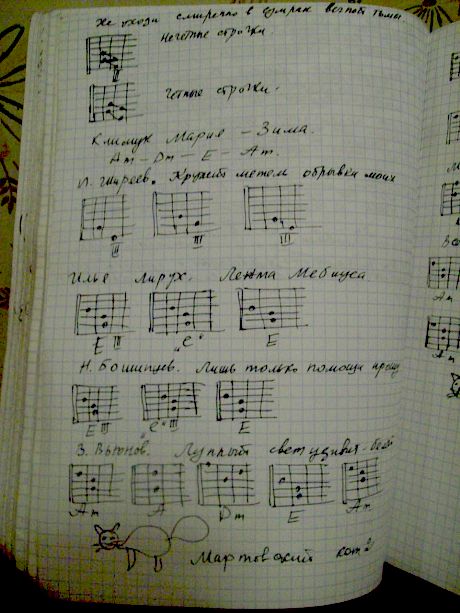 Не уходи смиренно в сумрак вечной тьмы.
Нечетные строчки.
III
Четные строчки.
Климук Мария – Зима.
Am – Dm – E – Am.
Кружит метель обрывки моих
III III III
Илье Лирух. Лента Мебиуса.
E III "C" E
Лишь только помощи прошу
E III "C" III E
З. Вьюнов. Лунный свет
Am A Dm E Am
Мартовский кот
Am
Am